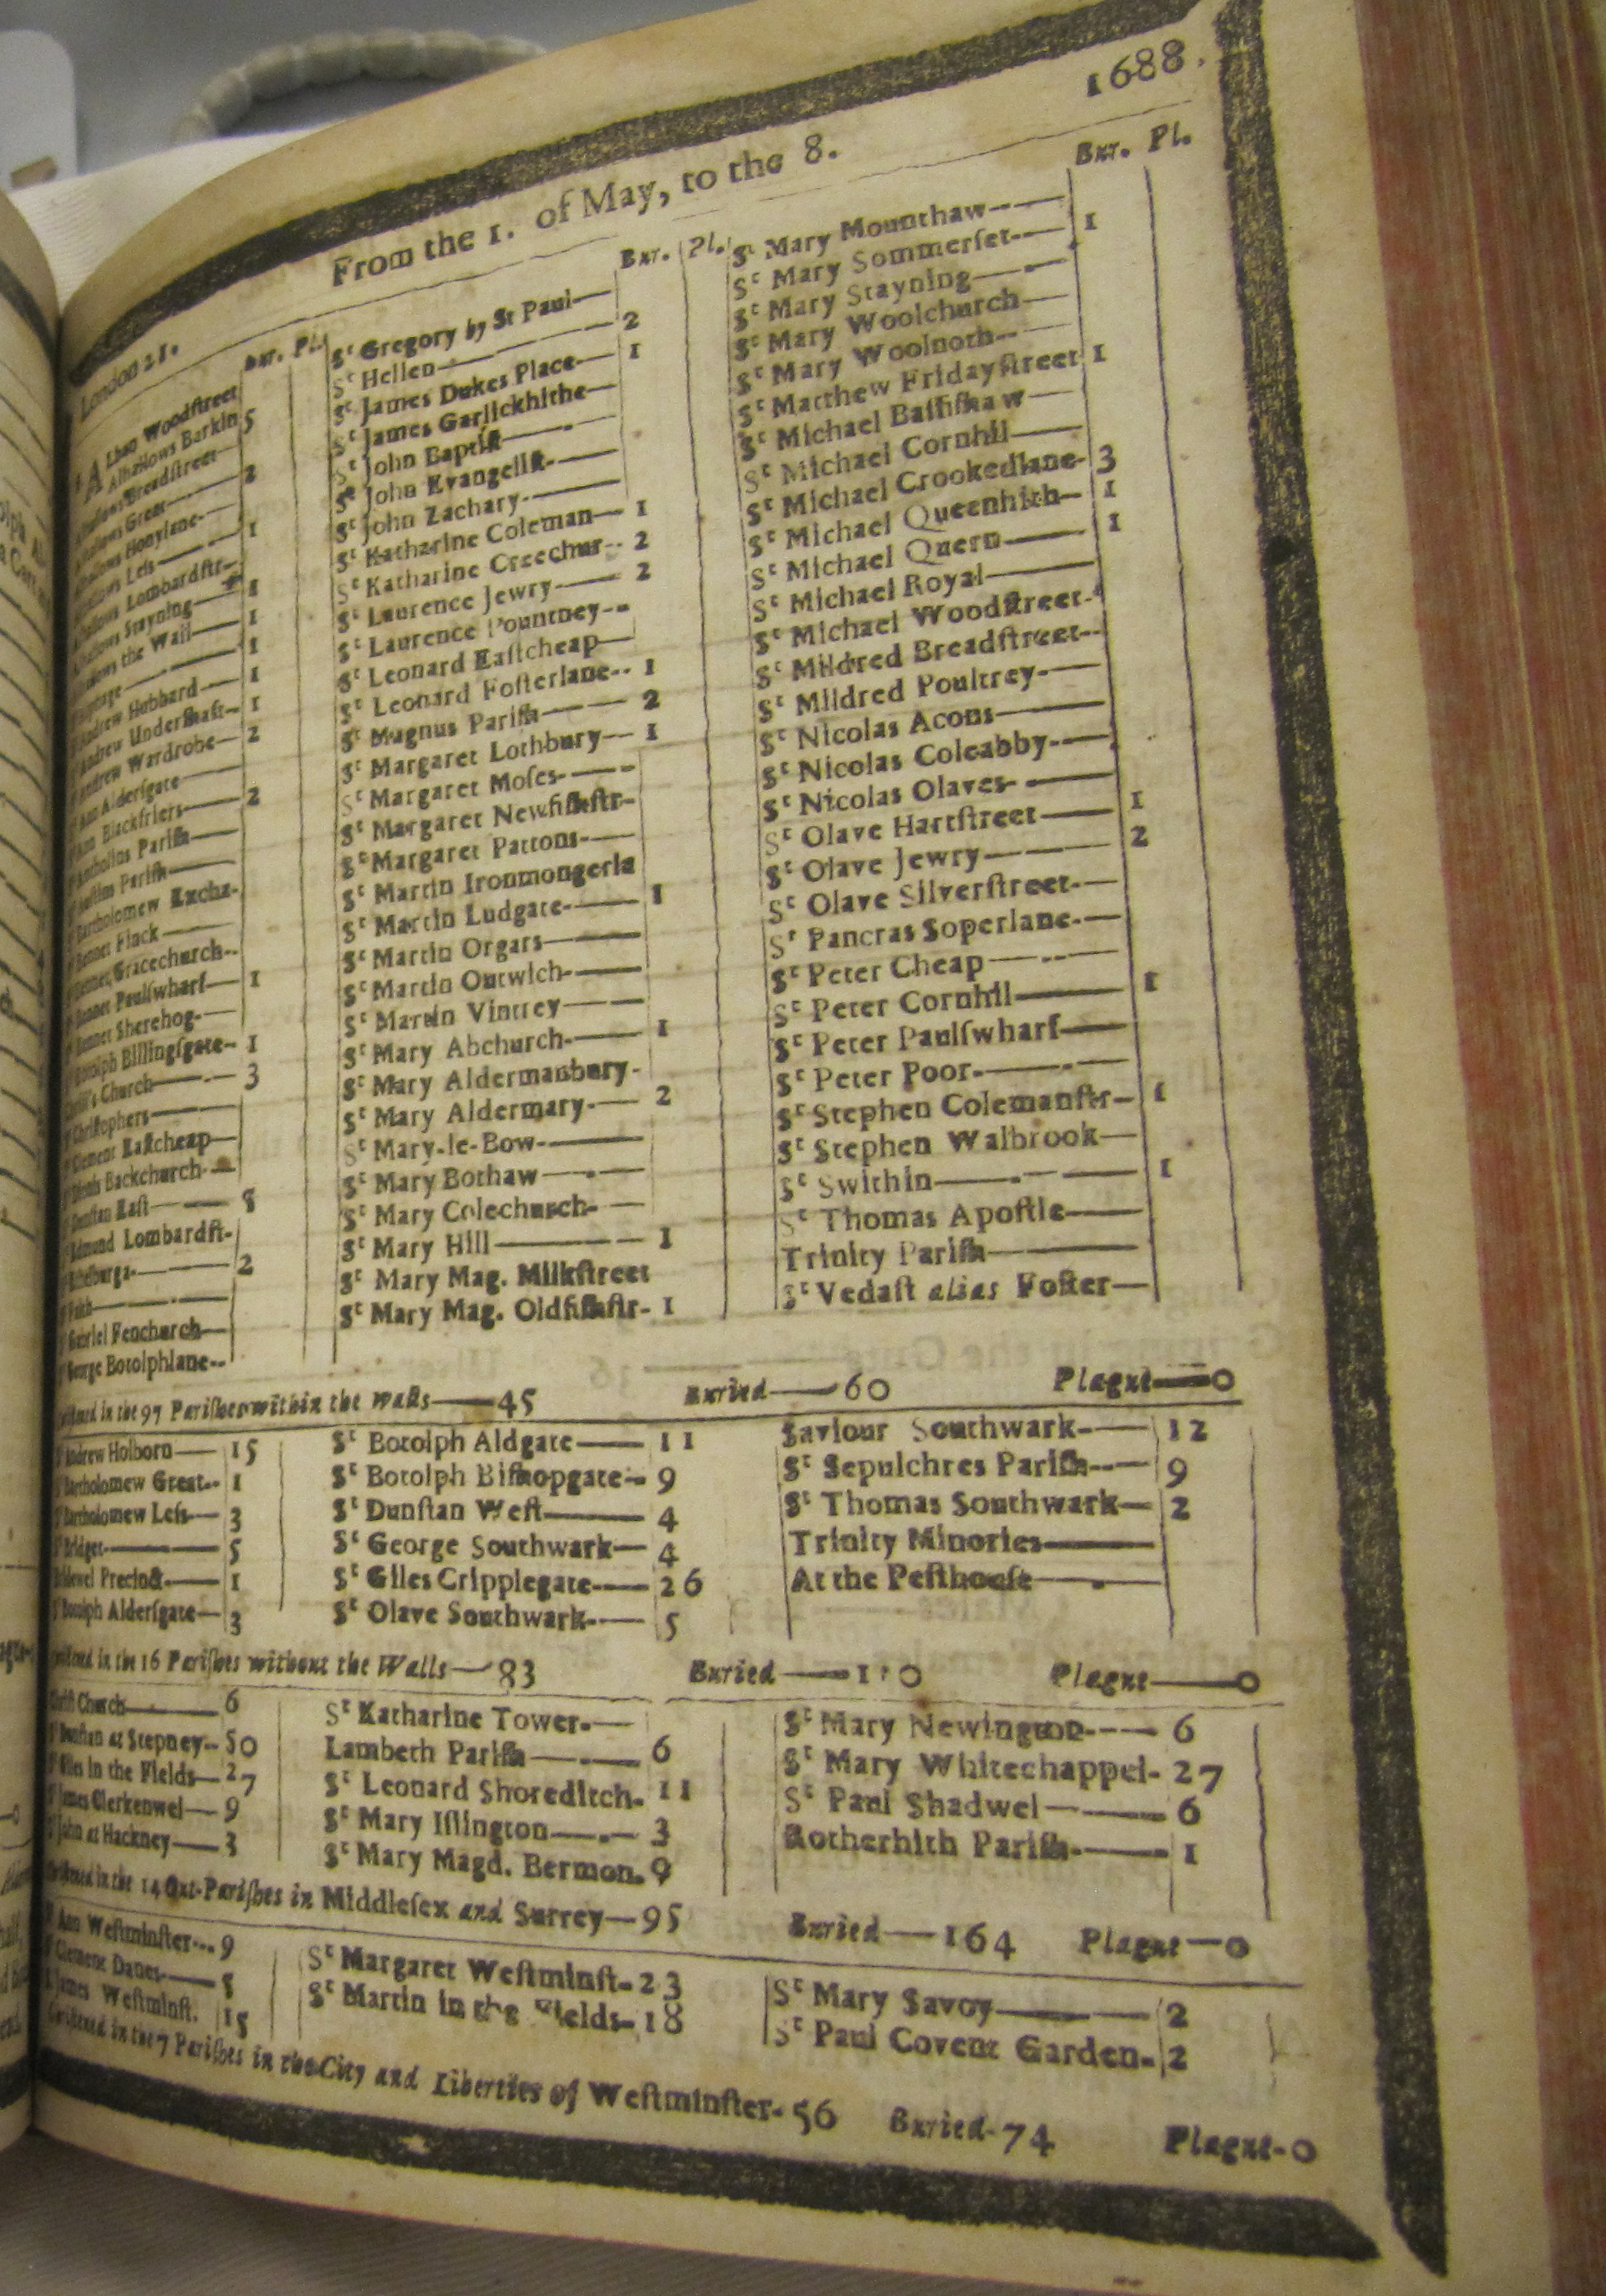 1688.
From the 1. of May, to the 8.
London 21.
Bur. Pl.
ALban Woodſtreet
Alhallows Barkin 5
Alhallows Breadſtreet—
Alhallows Great— 2
Alhallows Honylane-
Alhallows Leſs— 1
Alhallows Lombardſtr-
Alhallows Stayning— 1
the Wall— 1
— 1
Andrew Hubbard— 1
Andrew Underſhaft- 1
Andrew Wardrobe— 2
Ann Alderſgate—
Ann Blackfriers— 2
Pariſh—
Pariſh—
Bartholomew Excha-
Bennet Finck—
Bennet Gracechurch--
Bennet Paulſwharf— 1
Bennet Sherehog-—
Botolph Billingſgate- 1
Church— 3
Chriſtophers—
Clement Eaſtcheap—
Backchurch-—
Dunſtan Eaſt— 8
Edmund Lombardſt-
— 2
Faith—
Gabriel Fenchurch—
George Botolphlane--
Bur. Pl.
St Gregory by St Paul—
St Hellen— 2
St James Dukes Place— 1
St James Garlickhithe—
St John Baptiſt—
St John Evangeliſt-—
St John Zachary-—
St Katharine Coleman— 1
St Katharine Creechur-- 2
St Laurence Jewry— 2
St Laurence Pountney--
St Leonard Eaſtcheap—
St Leonard Foſterlane-- 1
St Magnus Pariſh— 2
St Margaret Lothbury— 1
St Margaret Moſes-—
St Margaret Newfiſhſtr-
St Margaret Pattons-—
St Martin Ironmongerla
St Martin Ludgate-— 1
St Martin Orgars—
St Martin Outwich-—
St Martin Vintrey—
St Mary Abchurch-— 1
St Mary Aldermanbury-
St Mary Aldermary-— 2
St Mary-le-Bow-—
St Mary Bothaw—
St Mary Colechurch-—
St Mary Hill— 1
St Mary Mag. Milkſtreet
St Mary Mag. Oldfiſhſtr- 1
Bur. Pl.
St Mary Mounthaw-—
St Mary Sommerſet-— 1
St Mary Stayning—
St Mary Woolchurch—
St Mary Woolnoth-—
St Matthew Fridayſtreet 1
St Michael Baſſiſhaw—
St Michael Cornhil—
St Michael Crookedlane- 3
St Michael Queenhith— 1
St Michael Quern— 1
St Michael Royal—
St Michael Woodſtreet-
St Mildred Breadſtreet--
St Mildred Poultrey-—
St Nicolas Acons—
St Nicolas Coleabby-—
St Nicolas Olaves-—
St Olave Hartſtreet— 1
St Olave Jewry— 2
St Olave Silverſtreet-—
St Pancras Soperlane-—
St Peter Cheap—
St Peter Cornhil— 1
St Peter Paulſwharf—
St Peter Poor-—
St Stephen Colemanſtr— 1
St Stephen Walbrook—
St Swithin— 1
St Thomas Apoſtle—
Trinity Pariſh—
St Vedaſt alias Foſter—
in the 97 Pariſhes within the walls—45 Buried—60 Plague—0
Andrew Holborn— 15
Bartholomew Great-- 1
Bartholomew Leſs— 3
Bridget— 5
Precinct-— 1
Botolph Alderſgate— 3
St Botolph Aldgate— 11
St Botolph Biſhopgate-- 9
St Dunſtan Weſt— 4
St George Southwark— 4
St Giles Cripplegate-— 26
St Olave Southwark-— 5
Saviour Southwark-— 12
St Sepulchres Pariſh--— 9
St Thomas Southwark— 2
Trinity Minories—
At the Peſthouſe—
in the 16 Pariſhes without the Walls—83 Buried— Plague—0
Church— 6
at Stepney-- 50
in the Fields— 27
Clerkenwel— 9
John at Hackney— 3
St Katharine Tower-—
Lambeth Pariſh— 6
St Leonard Shoreditch- 11
St Mary Iſlington— 3
St Mary Magd. Bermon. 9
St Mary Newington-— 6
St Mary Whitechappel- 27
St Paul Shadwel— 6
Rotherhith Pariſh-— 1
in the 14 Out-Pariſhes in Middleſex and Surrey—95 Buried—164 Plague—0
Ann Weſtminſter--- 9
Clement Danes-—
James Weſtminſt. 15
St Margaret Weſtminſt- 23
St Martin in the Fields- 18
St Mary Savoy— 2
St Paul Covent Garden- 2
in the 7 Pariſhes in the City and Liberties of Weſtminſter- 56 Buried-74 Plague-0